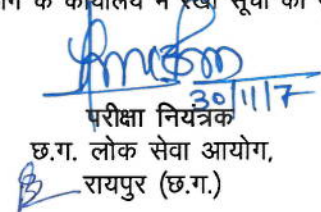 के कार्यालय में रखी सूची
30/11/7
परीक्षा नियंत्रक
छ.ग. लोक सेवा आयोग,
रायपुर (छ.ग.)